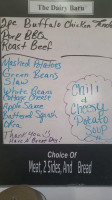 The Dairy Barn
2pc Buffalo Chicken
Pork BBQ
Roast Beef
Mashed Potatoes
Green Beans
Slaw
White Beans
Cottage Cheese
Apple Sauce
Buttered Squash
Okra
Thank you!!
Have A Great Day!
Chili
&
Cheesy
Potato
Soup
Choice Of
Meat, 2 Sides, And Bread